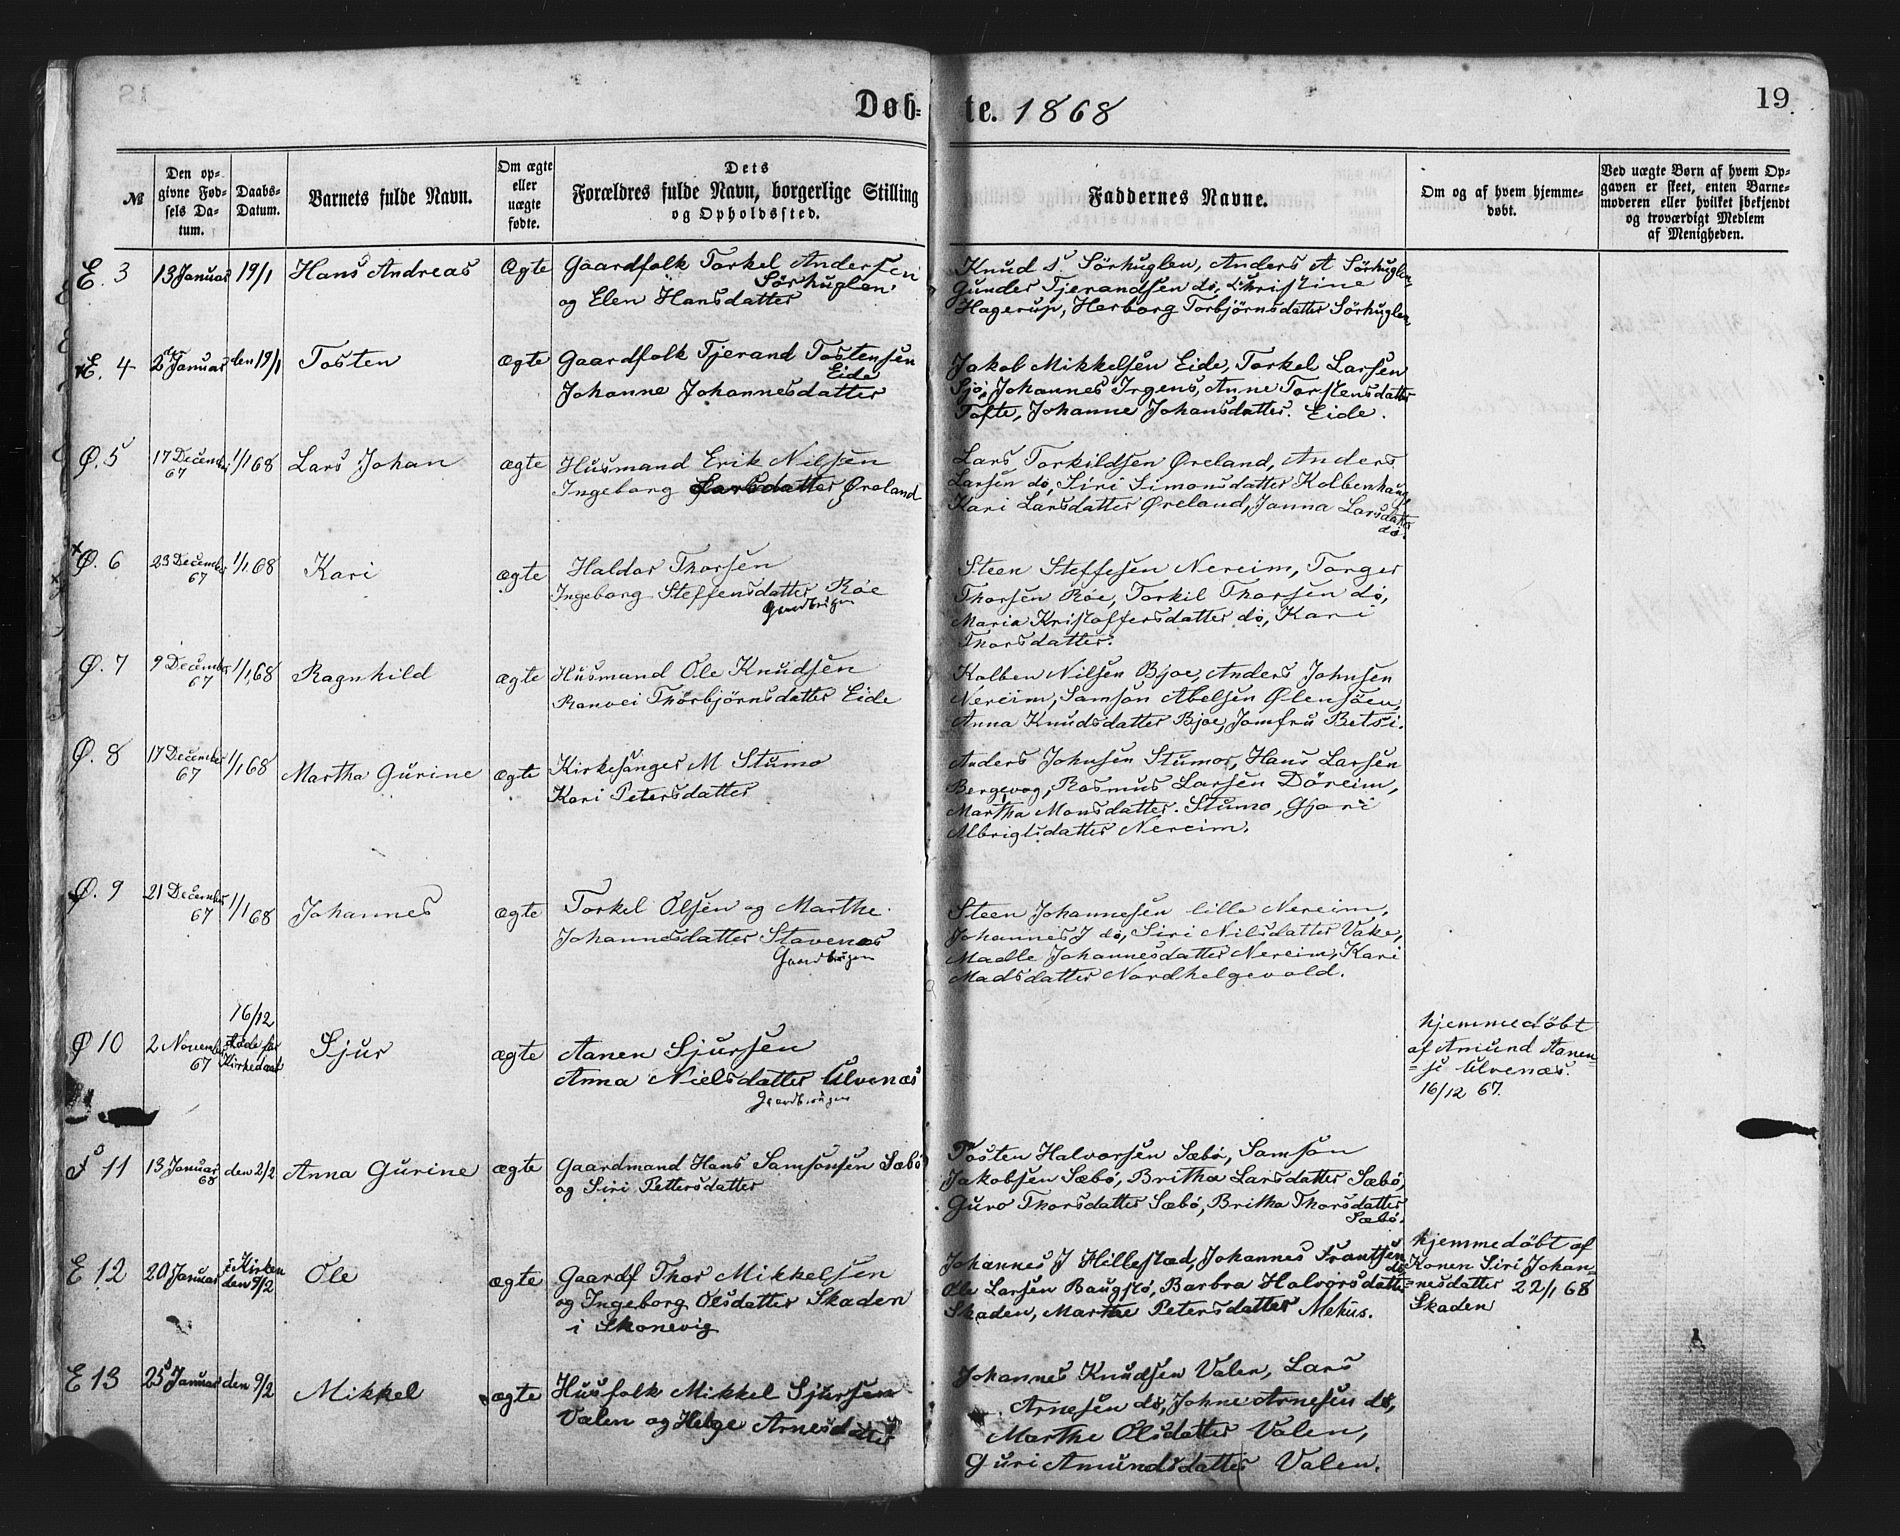 Døb-
te. 1868
19
№
Den op-
givne Fød-
sels Da-
tum.
Daabs-
Datum.
Barnets fulde Navn.
Om ægte
eller
uægte
fødte.
Dets
Forældres fulde Navn, borgerlige Stilling
og Opholdssted.
Faddernes Navne.
Om og af hvem hjemme-
døbt.
Ved uægte Børn af hvem Op-
gaven er skeet, enten Barne-
moderen eller hvilket bekjendt
og troværdigt Medlem
af Menigheden.
E. 3
13 Januar
19/1
Hans Andreas
Ægte
Gaardfolk Torkel Andersen
Sørhuglen
og Elen Hansdatter
Knud S. Sørhuglen, Anders A Sørhuglen
Gunder Tjerandsen do, Christine
Hagerup, Herborg Torbjørnsdatter Sørhuglen
E. 4
2den Januar
den 19/1
Tosten
ægte
Gaardfolk Tjerand Tostensen
Eide
Johanne Johannesdatter
Jakob Mikkelsen Eide, Torkel Larsen
Sjo, Johannes Irgens, Anne Torstensdatter
Tofte, Johanne Johansdatter. Eide.
Ø. 5
17 December
67
1/1 68
Lars Johan
ægte
Husmand Erik Nilsen
Ingeborg Larsdatter Øreland
Lars Torkildsen Øreland, Anders
Larsen do, Siri Simonsdatter Kolbenhaug
Kari Larsdatter Øreland, Janna Larsdatter
do.
Ø. 6
23 December
67
1/1 68
Kari
ægte
Haldor Thorsen
Ingeborg Steffensdatter Røe
Gaardbrugen
Steen Steffesen Nereim, Torger
Thorsen Røe, Torkil Thorsen do,
Maria Kristoffersdatter do, Kari
Thorsdatter.
Ø. 7
9 December
67
1/1 68
Ragnhild
ægte
Husmand Ole Knudsen
Ranvei Thorbjørnsdatter Eide
Kolben Nilsen Bjoe, Anders Johnsen
Nereim, Samson Abelsen Ølensøen,
Anna Knudsdatter Bjoe, Jomfru Betsi.
Ø. 8
17 December
67
1/1 68
Martha Gurine
ægte
Kirkesanger M Stumo
Kari Petersdatter
Anders Johnsen Stumo, Hans Larsen
Bergevog, Rasmus Larsen Døreim,
Martha Monsdatter. Stumo, Gjori
Albrigtsdatter Nereim.
Ø. 9
21 December
67
1/1 68
Johannes
ægte
Torkel Olsen og Marthe
Johannesdatter Stavenes
Gaardbrugen
Steen Johannesen lille Nereim,
Johannes J do, Siri Nilsdatter Vake,
Madle Johannesdatter Nereim, Kari
Madsdatter Nordhelgevold.
Ø 10
2 November
67
16/12
Kirkedaab
Sjur
ægte
Aanen Sjursen
Anna Nielsdatter Ulvenæs
Gaardbrugen
hjemmedøbt
af Amund Aanen-
=se Ulvenæs.
16/12 67.
11
13 Januar
68
den 2/2
Anna Gurine
ægte
Gaardmand Hans Samsonsen Sæbø
og Siri Pettersdatter
Tosten Halvorsen Sæbø, Samson
Jakobsen Sæbø, Britha Larsdatter Sæbø,
Guro Thorsdatter Sæbø, Britha Thorsdatter
Sæbø.
E 12
20 Januar
i Kirken
den 9/2
Ole
ægte
Gaardf Thor Mikkelsen
og Ingeborg Olsdatter Skaden
i Skonevig
Johannes J Hillestad, Johannes Frantsen
do
Ole Larsen Baugstø, Barbra Halvorsdatter
Skaden, Marthe Petersdatter Mehus.
hjemmedøbt af
Konen Siri Johan=
=nesdatter 22/1 68
Skaden
E 13
25 Januar
den 9/2
Mikkel
ægte
Husfolk Mikkel Sjursen
Valen og Helge Arnesdatter
Johannes Knudsen Valen, Lars
Arnesen do, Johne Arnesen do,
Marthe Olsdatter Valen,
Guri Amundsdatter Valen.